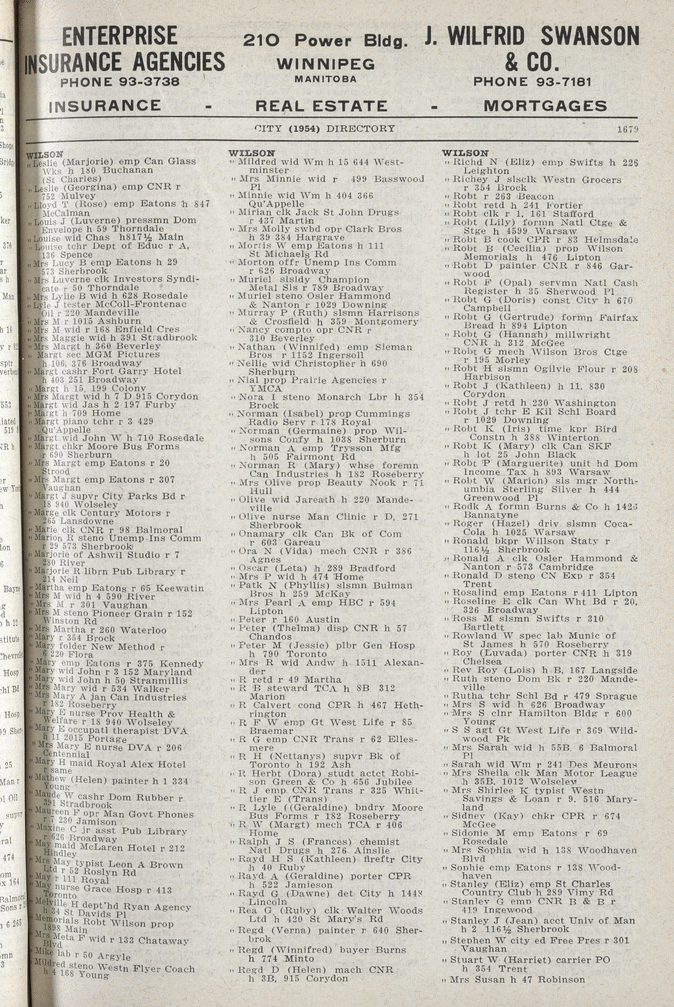 ENTERPRISE
INSURANCE AGENCIES
PHONE 93-3738
INSURANCE -
210 Power Bldg.
WINNIPEG
MANITOBA
REAL ESTATE -
J. WILFRID SWANSON
& CO.
PHONE 93-7181
MORTGAGES
CITY (1954) DIRECTORY 1679
WILSON
" Leslie (Marjorie) emp Can Glass
Wks h 180 Buchanan
(St Charles)
" Leslie (Georgina) emp CNR r
752 Mulvey
" Lloyd T (Rose) emp Eatons h 847
McCalman
" Louis J (Luverne) pressmn Dom
Envelope h 59 Thorndale
" Louise wid Chas h817½ Main
" Louise tchr Dept of Educ r A,
136 Spence
" Mrs Lucy B emp Eatons h 29
573 Sherbrook
" Mrs Luverne clk Investors Syndi-
cate r 50 Thorndale
" Mrs Lylie B wid h 628 Rosedale
" Lyle J tester McColl-Frontenac
Oil r 220 Mandeville
" Mrs M r 1015 Ashburn
" Mrs M wid r 168 Enfield Cres
" Mrs Maggie wid h 391 Stradbrook
" Margt h 360 Beverley
" Margt sec MGM Pictures
h 106, 376 Broadway
" Margt cashr Fort Garry Hotel
h 403 251 Broadway
" Margt h 15, 199 Colony
" Mrs Margt wid h 7 D 915 Corydon
" Margt wid Jas h 2 197 Furby
" Margt h 709 Home
" Margt piano tchr r 3 429
Qu'Appelle
" Margt wid John W h 710 Rosedale
" Margt chkr Moore Bus Forms
r 690 Sherburn
" Mrs Margt emp Eatons r 20
Strood
" Mrs Margt emp Eatons r 307
Vaughan
" Margt J supvr City Parks Bd r
18 940 Wolseley
" Marge clk Century Motors r
265 Lansdowne
" Marie clk CNR r 98 Balmoral
" Marion R steno Unemp Ins Comm
r 29 573 Sherbrook
" Marjorie of Ashwil Studio r 7
280 River
" Marjorie R librn Pub Library r
214 Neil
" Martha emp Eatons r 65 Keewatin
" Mrs M wid h 4 590 River
" Mrs M r 301 Vaughan
" Mrs M steno Pioneer Grain r 152
Winston Rd
" Mrs Martha r 260 Waterloo
" Mary r 354 Brock
" Mary folder New Method r
6 220 Flora
" Mary emp Eatons r 375 Kennedy
" Mary wid John r 3 152 Maryland
" Mary wid John h 50 Stranmillis
" Mrs Mary wid r 534 Walker
" Mrs Mary A jan Can Industries
r 182 Roseberry
" Mary E nurse Prov Health &
Welfare r 18 940 Wolseley
" Mary E occupatl therapist DVA
h 11 2015 Portage
" Mrs Mary E nurse DVA r 206
Centennial
" Mary H maid Royal Alex Hotel
r same
" Mathew (Helen) painter h 1 334
Young
" Maude W cashr Dom Rubber r
391 Stradbrook
" Maureen F opr Man Govt Phones
r 7 230 Jamison
" Maxine C jr asst Pub Library
r 626 Broadway
" May maid McLaren Hotel r 212
Hindley
" Mrs May typist Leon A Brown
Ltd r 52 Hoslyn Rd
" May r 111 Royal
" May nurse Grace Hosp r 413
Toronto
" Melville H dept'hd Ryan Agency
h 34 St Davids Pl
" Memorials Robt Wilson prop
1898 Main
" Mrs Meta F wid r 133 Chataway
Blvd
" Mike lab r 50 Argyle
" Mildred steno Westn Flyer Coach
h 4 168 Young
WILSON
" Mildred wid Wm h 15 644 West-
minster
" Mrs Minnie wid r 499 Basswood
Pl
" Minnie wid Wm h 404 366
Qu'Appelle
" Mirian clk Jack St John Drugs
r 437 Martin
" Mrs Molly swbd opr Clark Bros
h 39 384 Hargrave
" Morris W emp Eatons h 111
St Michaels Rd
" Morton offr Unemp Ins Comm
r 626 Broadway
" Muriel slsldy Champion
Metal Sls r 789 Broadway
" Muriel steno Osler Hammond
& Nanton r 1029 Downing
" Murray P (Ruth) slsmn Harrisons
& Crosfield h 359 Montgomery
" Nancy compto opr CNR r
310 Beverley
" Nathan (Winnifed) emp Sleman
Bros r 1152 Ingersoll
" Nellie wid Christopher h 690
Sherburn
" Nial prop Prairie Agencies r
YMCA
" Nora I steno Monarch Lbr h 354
Brock
" Norman (Isabel) prop Cummings
Radio Serv r 178 Royal
" Norman (Germaine) prop Wil-
sons Confy h 1038 Sherburn
" Norman A emp Trysson Mfg
h 505 Fairmont Rd
" Norman R (Mary) whse foremn
Can Industries h 182 Roseberry
" Mrs Olive prop Beauty Nook r 71
Hull
" Olive wid Jareath h 220 Mande-
ville
" Olive nurse Man Clinic r D, 271
Sherbrook
" Onamary clk Can Bk of Com
r 603 Gareau
" Ora N (Vida) mech CNR r 386
Agnes
" Oscar (Leta) h 289 Bradford
" Mrs P wid h 474 Home
" Patk N (Phyllis) slsmn Bulman
Bros h 259 McKay
" Mrs Pearl A emp HBC r 594
Lipton
" Peter r 160 Austin
" Peter (Thelma) disp CNR h 57
Chandos
" Peter M (Jessie) plbr Gen Hosp
h 790 Toronto
" Mrs R wid Andw h 1511 Alexan-
der
" R retd r 49 Martha
" R B steward TCA h 8B 312
Marion
" R Calvert cond CPR h 467 Heth-
rington
" R F W emp Gt West Life r 85
Braemar
" R G emp CNR Trans r 62 Elles-
mere
" R H (Nettanys) supvr Bk of
Toronto h 192 Ash
" R Herbt (Dora) studt actet Robi-
nson Green & Co h 656 Jubilee
" R J emp CNR Trans r 325 Whit-
tier E (Trans)
" R Lyle ((Geraldine) bndry Moore
Bus Forms r 182 Roseberry
" R W (Margt) mech TCA r 406
Home
" Ralph J S (Frances) chemist
Natl Drugs h 276 Ainslie
" Rayd H S (Kathleen) fireftr City
h 40 Ruby
" Rayd A (Geraldine) porter CPR
h 522 Jamieson
" Rayd G (Dawne) det City h 1448
Lincoln
" Rea G (Ruby) clk Walter Woods
Ltd h 420 St Mary's Rd
" Regd (Verna) painter r 640 Sher-
brok
" Regd (Winnifred) buyer Burns
h 774 Minto
" Regd D (Helen) mach CNR
h 3B, 915 Corydon
WILSON
" Richd N (Eliz) emp Swifts h 226
Leighton
" Richey J slsclk Westn Grocers
r 354 Brock
" Robt r 263 Beacon
" Robt retd h 241 Fortier
" Robt clk r 1, 161 Stafford
" Robt (Lily) formn Natl Ctge &
Stge h 4599 Warsaw
" Robt B cook CPR r 83 Helmsdale
" Robt B (Cecilia) prop Wilson
Memorials h 476 Lipton
" Robt D painter CNR r 846 Gar-
wood
" Robt F (Opal) servmn Natl Cash
Register h 35 Sherwood Pl
" Robt G (Doris) const City h 670
Campbell
" Robt G (Gertrude) formn Fairfax
Bread h 894 Lipton
" Robt G (Hannah) millwright
CNR h 312 McGee
" Robt G mech Wilson Bros Ctge
r 195 Morley
" Robt H slsmn Ogilvie Flour r 208
Harbison
" Robt J (Kathleen) h 11, 830
Corydon
" Robt J retd h 230 Washington
" Robt J tchr E Kil Schl Board
r 1029 Downing
" Robt K (Iris) time kpr Bird
Constn h 388 Winterton
" Robt K (Mary) clk Can SKF
h lot 25 John Black
" Robt P (Marguerite) unit hd Dom
Income Tax h 893 Warsaw
" Robt W (Marion) sls mgr North-
umbia Sterling Silver h 444
Greenwood Pl
" Rodk A formn Burns & Co h 1426
Bannatyne
" Roger (Hazel) driv slsmn Coca-
Cola h 1025 Warsaw
" Ronald bkpr Willson Staty r
116½ Sherbrook
" Ronald A clk Osler Hammond &
Nanton r 573 Cambridge
" Ronald D steno CN Exp r 354
Trent
" Rosalind emp Eatons r411 Lipton
" Roseline E clk Can Wht Bd r 20,
326 Broadway
" Ross M slsmn Swifts r 310
Bartlett
" Rowland W spec lab Munic of
St James h 570 Roseberry
" Roy (Luvada) porter CNR h 319
Chelsea
" Rev Roy (Lois) h B, 167 Langside
" Ruth steno Dom Bk r 220 Mande-
ville
" Rutha tchr Schl Bd r 479 Sprague
" Mrs S wid h 626 Broadway
" Mrs S clnr Hamilton Bldg r 600
Young
" S S agt Gt West Life r 369 Wild-
wood Pk
" Mrs Sarah wid h 55B, 6 Balmoral
Pl
" Sarah wid Wm r 241 Des Meurons
" Mrs Sheila clk Man Motor League
h 35B, 1012 Wolseley
" Mrs Shirlee K typist Westn
Savings & Loan r 9, 516 Mary-
land
" Sidney (Kay) chkr CPR r 674
McGee
" Sidonie M emp Eatons r 69
Rosedale
" Mrs Sophia wid h 138 Woodhaven
Blvd
" Sophie emp Eatons r 138 Wood-
haven
" Stanley (Eliz) emp St Charles
Country Club h 289 Vimy Rd
" Stanley G emp CNR B & B r
419 Ingewood
" Stanley J (Jean) acct Univ of Man
h 2 116½ Sherbrook
" Stephen W city ed Free Pres r 301
Vaughan
" Stuart W (Harriet) carrier PO
h 354 Trent
" Mrs Susan h 47 Robinson